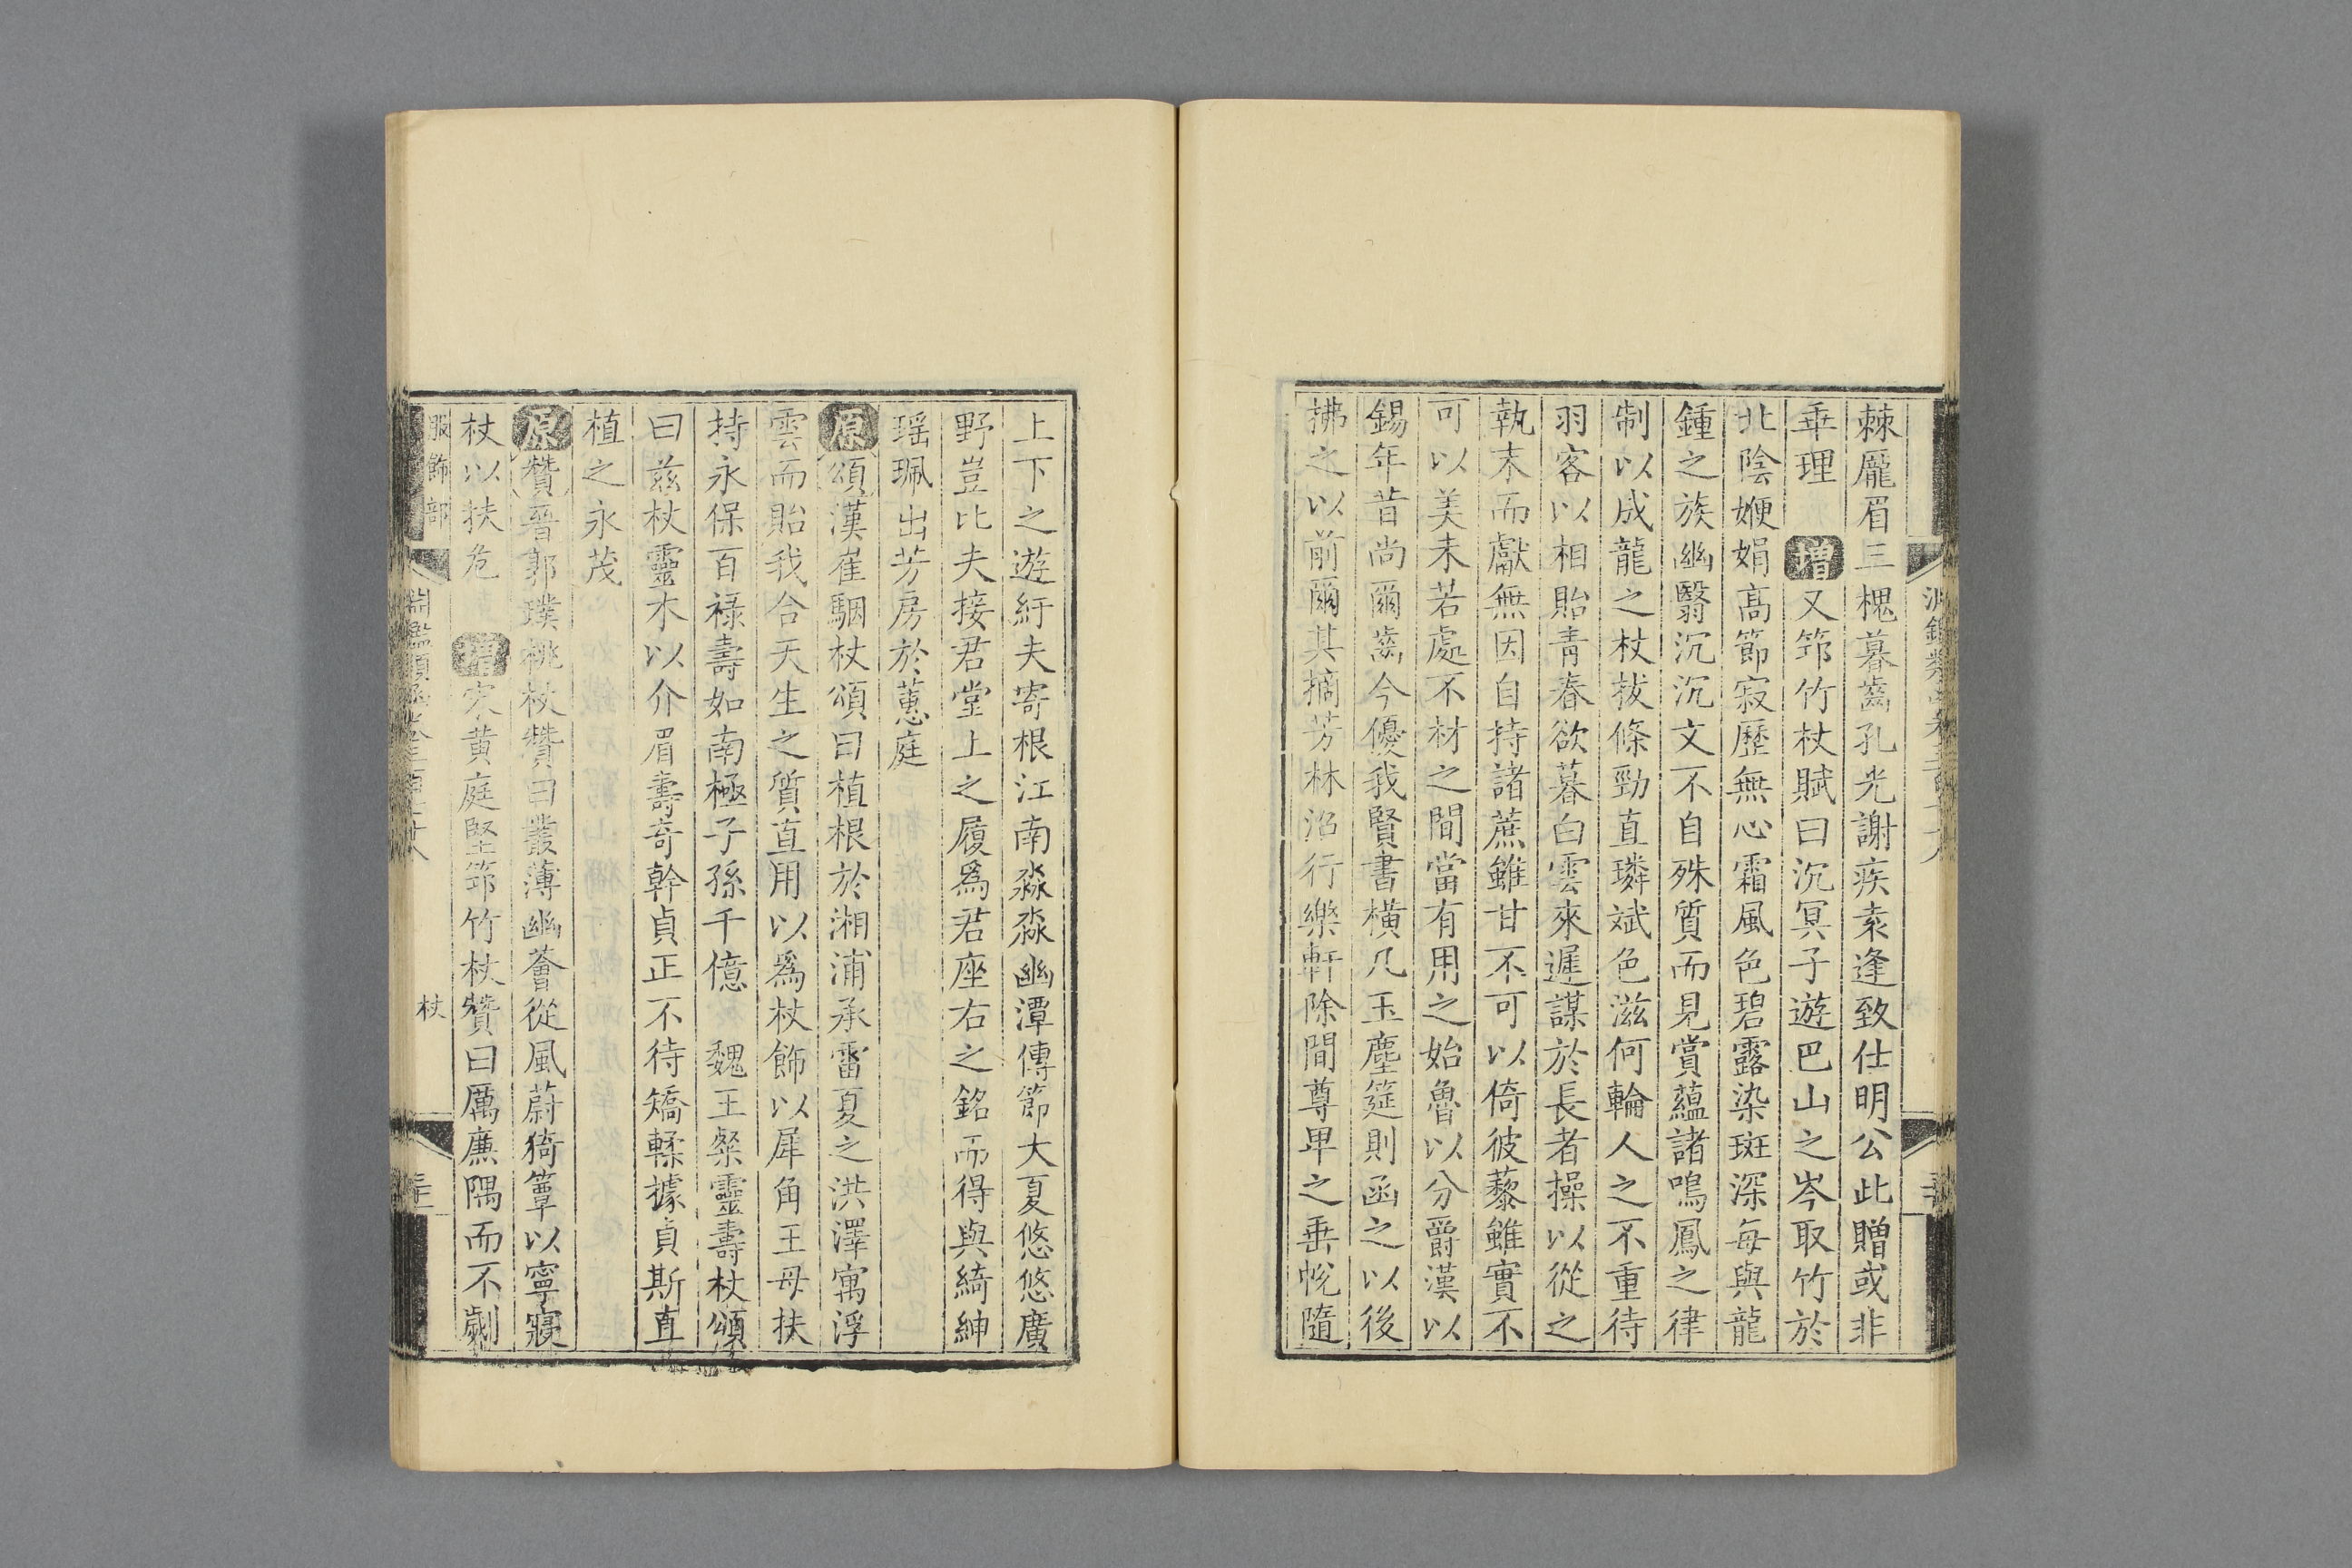 棘龎眉三槐暮齒孔光謝疾袁逢致仕明公此贈或非
乖理　增又筇竹杖賦曰沉冥子遊巴山之岑取竹於
北陰㛹娟高節寂歷無心霜風色碧露染斑深每與龍
鍾之族幽翳沉沉文不自殊質而見賞蘊諸鳴鳳之律
制以成龍之杖拔條勁直璘斌色滋何輪人之不重待
羽客以相貽青春欲暮白雲來遲謀於長者操以從之
執末而獻無因自持諸蔗雖甘不可以倚彼藜雖實不
可以美未若處不材之間當有用之始魯以分爵漢以
錫年昔尚爾齒今優我賢書橫几玉塵筵則函之以後
拂之以前爾其摘芳林沼行樂軒除間尊卑之垂帨隨
上下之遊紆夫寄根江南淼淼幽潭傳節大夏悠悠廣
野豈比夫接君堂上之履爲君座右之銘而得與綺紳
瑶珮出芳房於蕙庭
原頌漢崔駰杖頌曰植根於湘浦承雷夏之洪澤寓浮
雲而貽我合天生之質直用以爲杖飾以犀角王母扶
持永保百祿壽如南極子孫千億　魏王粲靈壽杖頌
曰兹杖靈木以介眉壽奇幹貞正不待矯輮據貞斯直
植之永茂
原贊晉郭璞桃杖贊曰叢薄幽薈從風蔚猗簟以寧寢
杖以扶危　增宋黄庭堅筇竹杖贊曰厲廉隅而不劌
服飾部
淵鑑類函卷三百七十八
杖